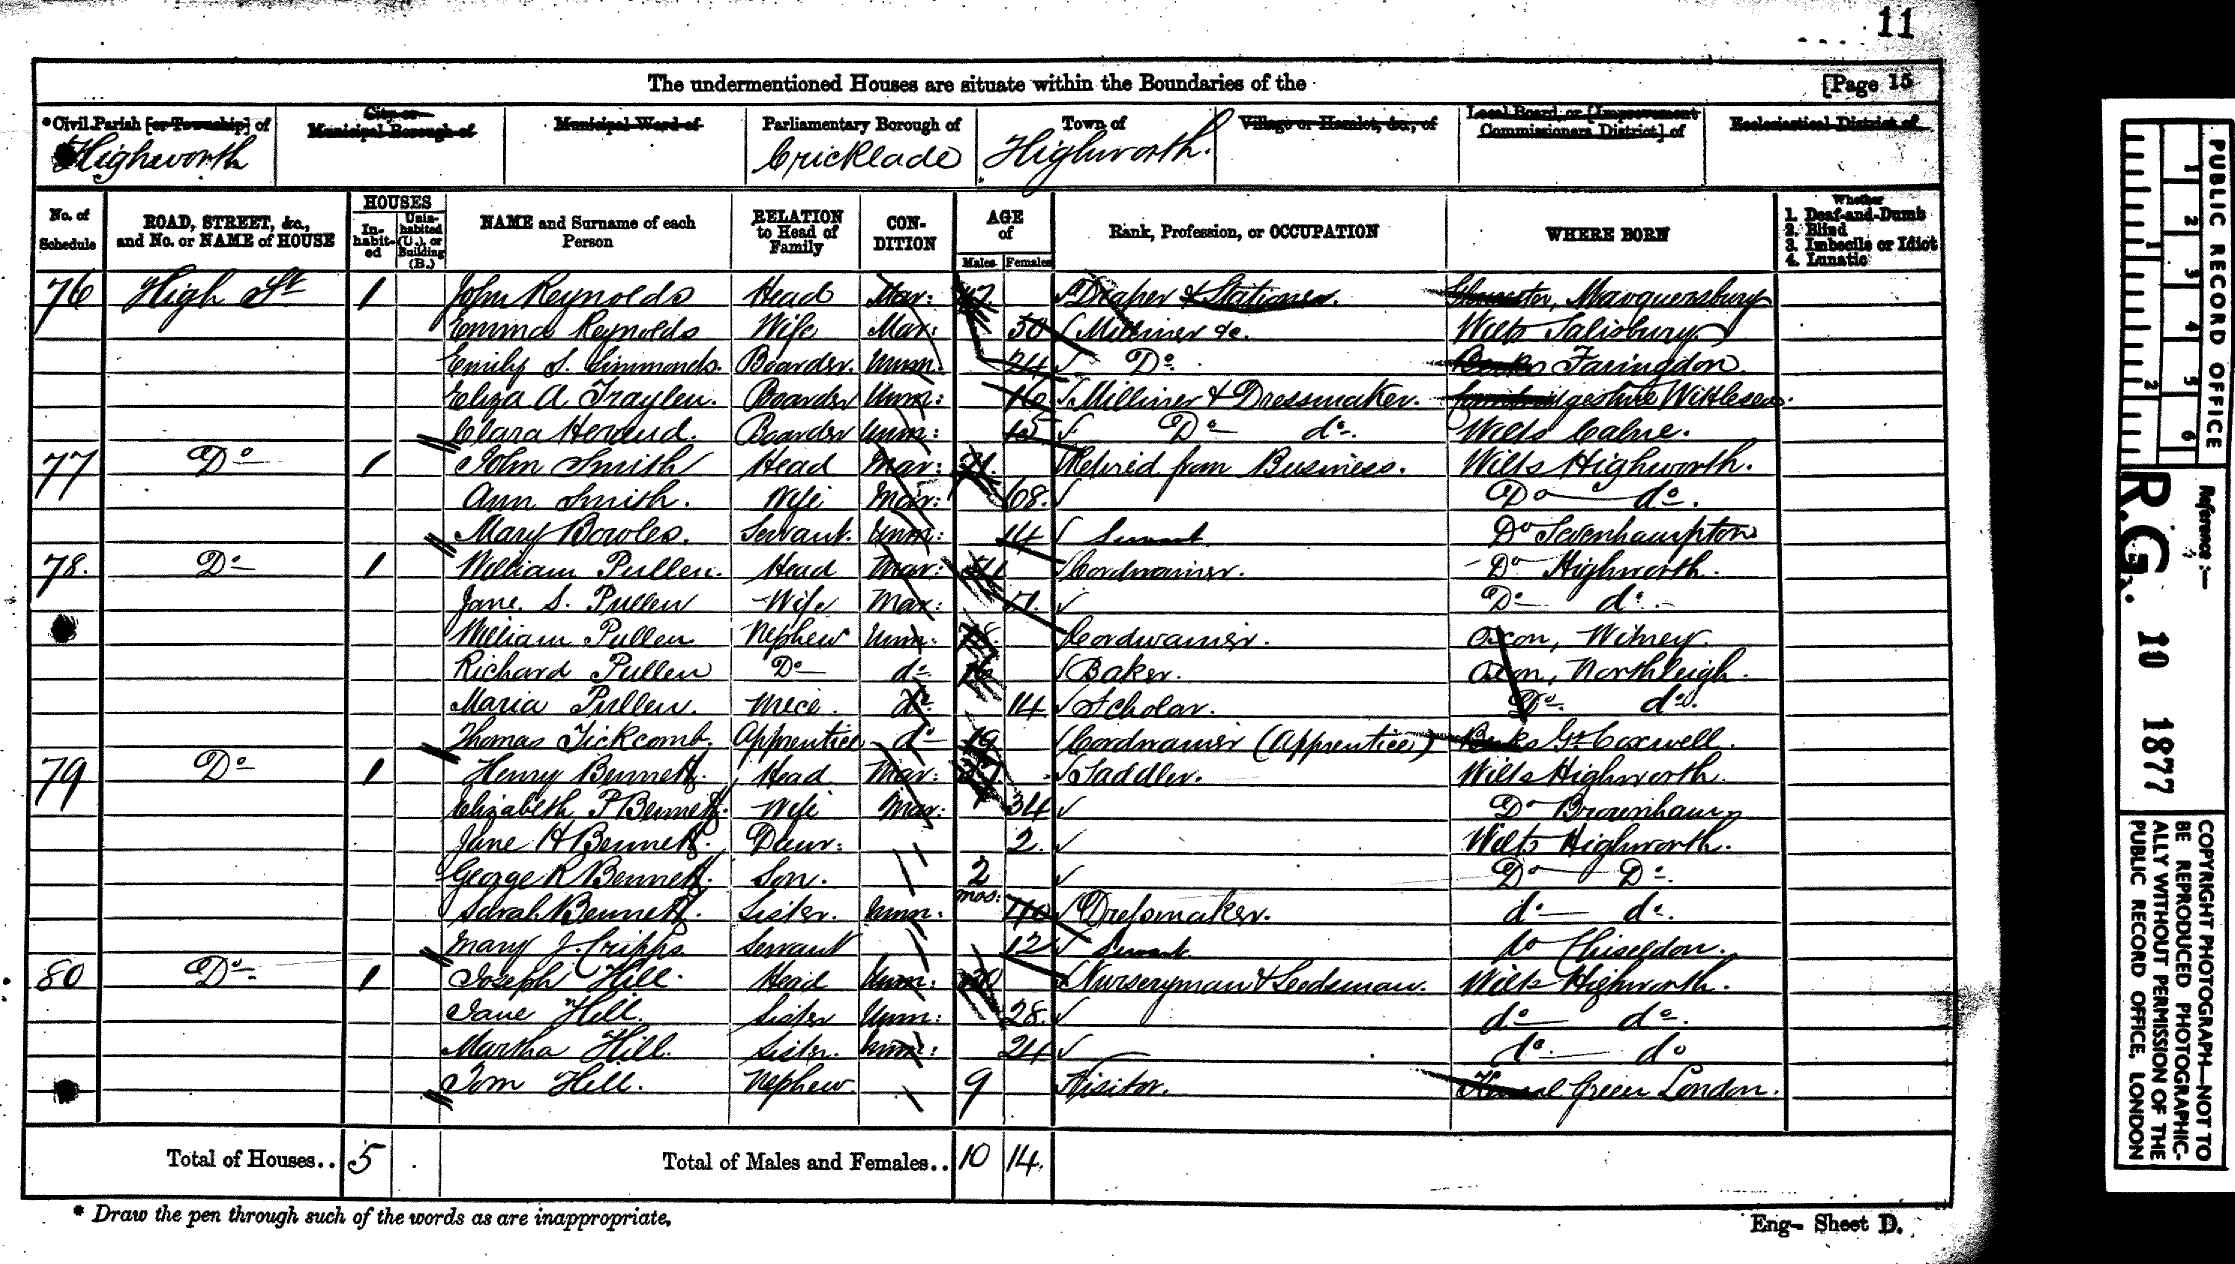 11
The undermentioned Houses are situate within the Boundaries of the
[Page 15
*Civil Parish [or Township] of
City or Municipal Borough of
Municipal Ward of
Parliamentary Borough of
Town of
Village or Hamlet, &c., of
Local Board, or [Improvement Commissioners District] of
Ecclesiastical District of
Highworth
Cricklade
Highworth.
No. of Schedule
ROAD, STREET, &c., and No. or NAME of HOUSE
HOUSES
In-habit-ed
Unin-habited (U.), or Building (B.)
NAME and Surname of each Person
RELATION to Head of Family
CON-DITION
AGE of
Males
Females
Rank, Profession, or OCCUPATION
WHERE BORN
Whether
1. Deaf-and-Dumb
2. Blind
3. Imbecile or Idiot
4. Lunatic
76 High St 1 John Reynolds Head Mar: Draper & Stationer.
Emma Reynolds Wife Mar: 50 Milliner &c. Wilts Salisbury
Emily S. Simmonds. Boarder. Unm: 24 Do Berks Faringdon.
Eliza A Traylen. Boarder Unm: 16 Milliner & Dressmaker.
Clara Boarder Unm: 15 Do do. Wilts Calne.
77 Do 1 John Smith Head Mar: 71. Retired from Business. Wilts Highworth.
Ann Smith. Wife Mar: 68. Do do.
Mary Bowles. Servant. Unm: 14 Servant Do Sevenhampton
78. Do 1 William Pullen. Head Mar: Cordwainer. Do Highworth.
Jane. S. Pullen Wife Mar: 51. Do do.
William Pullen Nephew Unm: 18 Cordwainer. Oxon, Witney.
Richard Pullen Do do 16 Baker. Oxon, Northleigh.
Maria Pullen. Niece. do 14 Scholar. Do. do.
Thomas Tickcomb. Apprentice do 19 Cordwainer (Apprentice) Berks Gt Coxwell.
79 Do 1 Henry Bennett. Head Mar: Saddler. Wilts Highworth.
Elizabeth P Bennett. Wife Mar: 34 Do
Jane H Bennett. Daur: 2. Wilts Highworth.
George R Bennett. Son. 2 mos: Do Do.
Sarah Bennett. Sister. Unm: 40 Dressmaker. do do.
Mary J. Cripps Servant 12 Servant do Chiseldon.
80 Do 1 Joseph Hill. Head Unm: 30 Nurseryman & Seedsman. Wilts Highworth.
Jane Hill. Sister Unm: 28. do do.
Martha Hill. Sister. Unm: 24 do. do
Tom Hill. Nephew. 9 Visitor. Kensal Green London.
Total of Houses.. 5
Total of Males and Females.. 10 14.
* Draw the pen through such of the words as are inappropriate.
Eng- Sheet D.
PUBLIC RECORD OFFICE
1 2 3 4 5 6
1 2
Reference :-
R.G. 10 1877
COPYRIGHT PHOTOGRAPH—NOT TO
BE REPRODUCED PHOTOGRAPHIC-
ALLY WITHOUT PERMISSION OF THE
PUBLIC RECORD OFFICE, LONDON